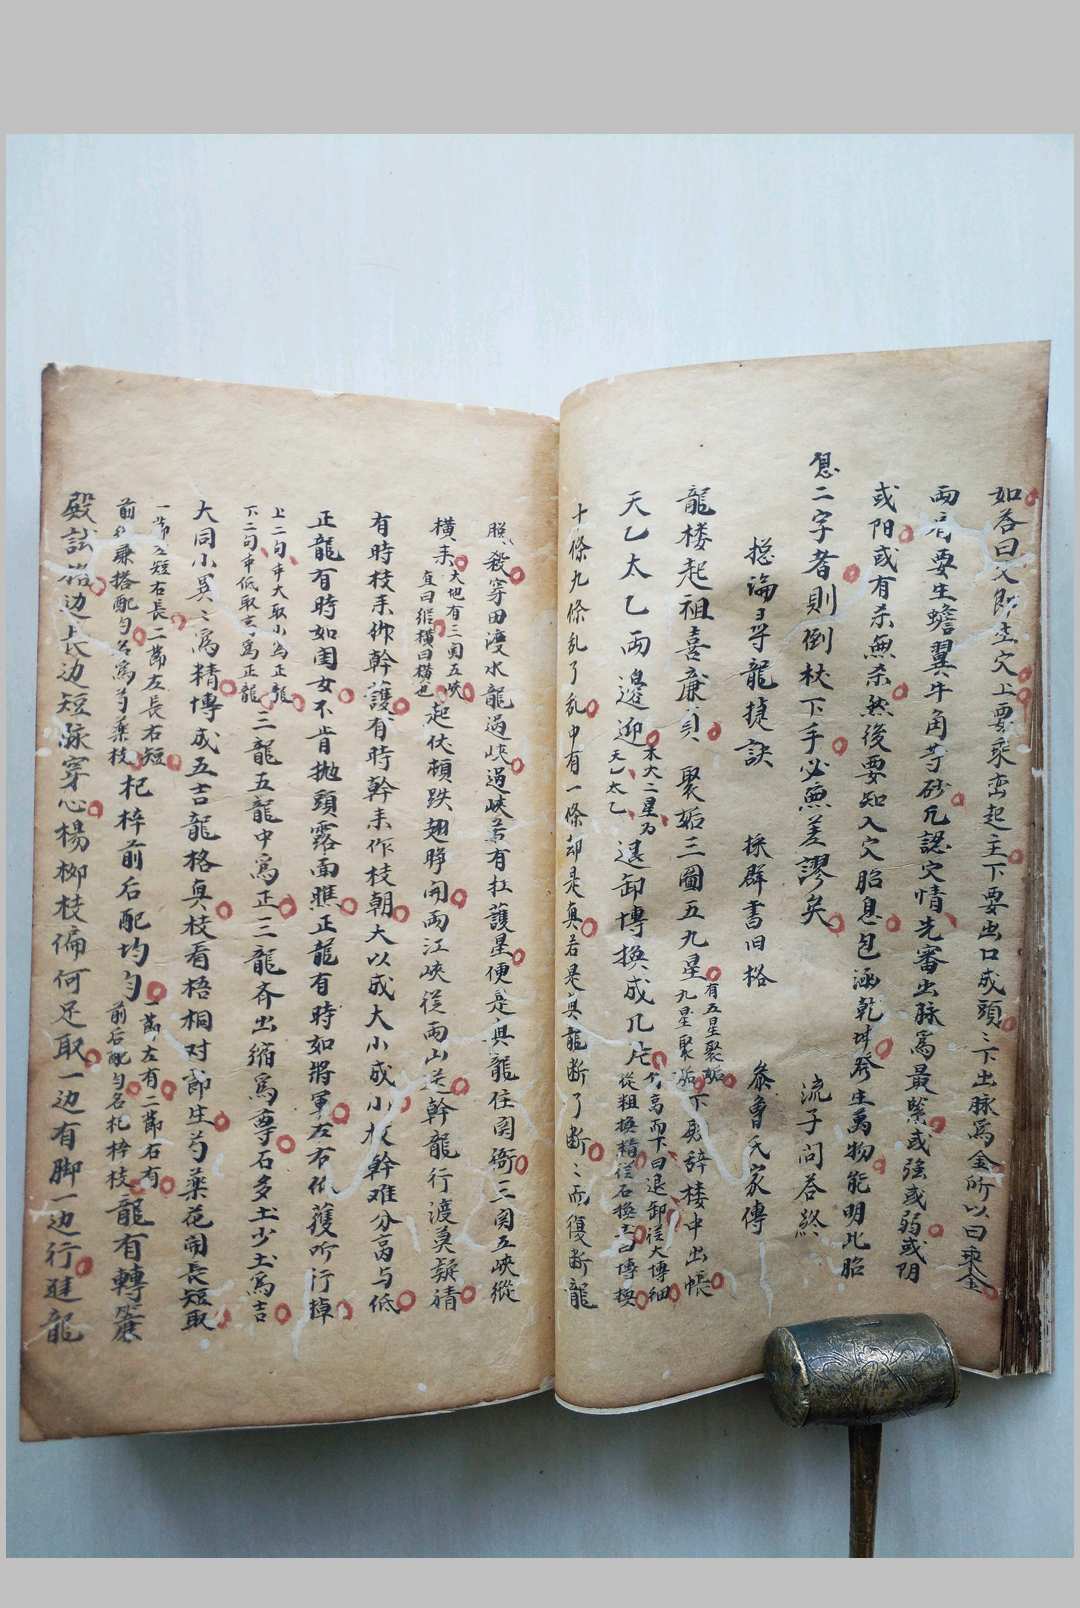 如答曰 即生穴上要乘峦起主下要出口成頭〻下出脉為金所以曰乘金
两 要生蟾翼牛角等砂凡認穴情先審出脉為最緊或強或弱或阴
或阳或有杀無杀然後要知入穴胎息包涵乾坤發生萬物能明此胎
息二字者則倒杖下手必無差謬矣 流子问答終
捴論寻龍捷訣 採群書旧格 叅曾氏家傳
龍楼起祖喜廉貞 聚垢三圖五九星
有五星聚垢
九星聚垢
下殿辞楼中出帳
天乙太乙两邊迎
木火二星为
天乙太乙
退卸博换成几片
高而下曰退卸從大博細
從粗换精從石换土曰博换
十條九條乱了乱中有一條却是真若是真龍断了断〻而復断龍
照殺穿田渡水龍過峡過峡蔂有扛護星便是真龍住関衙三関五峡縱
横来
大地有三関五峡
直曰縱横曰横也
起伏頓跌翅睁開两江峡從两山送幹龍行渡莫疑猜
有時枝来作幹護有時幹来作枝朝大以成大小成小枝幹难分高与低
正龍有時如闺女不肯抛頭露面瞧正龍有時如將軍左右依護听行棹
上二句中大取小為正張
下二句中低取高為正龍
三龍五龍中為正三龍齐出缩為尊石多土少土為吉
大同小異〻為精博成五吉龍格真枝看梧桐对節生芍薬花開長短取
一節左短右長二節左長右短
前後兼搭配匀名為芍薬枝
杞梓前后配均匀
一節左有二節右有
前后配匀名杞梓枝
龍有轉簾
殿試格边长边短脉穿心楊柳枝偏何足取一边有脚一边行延龍